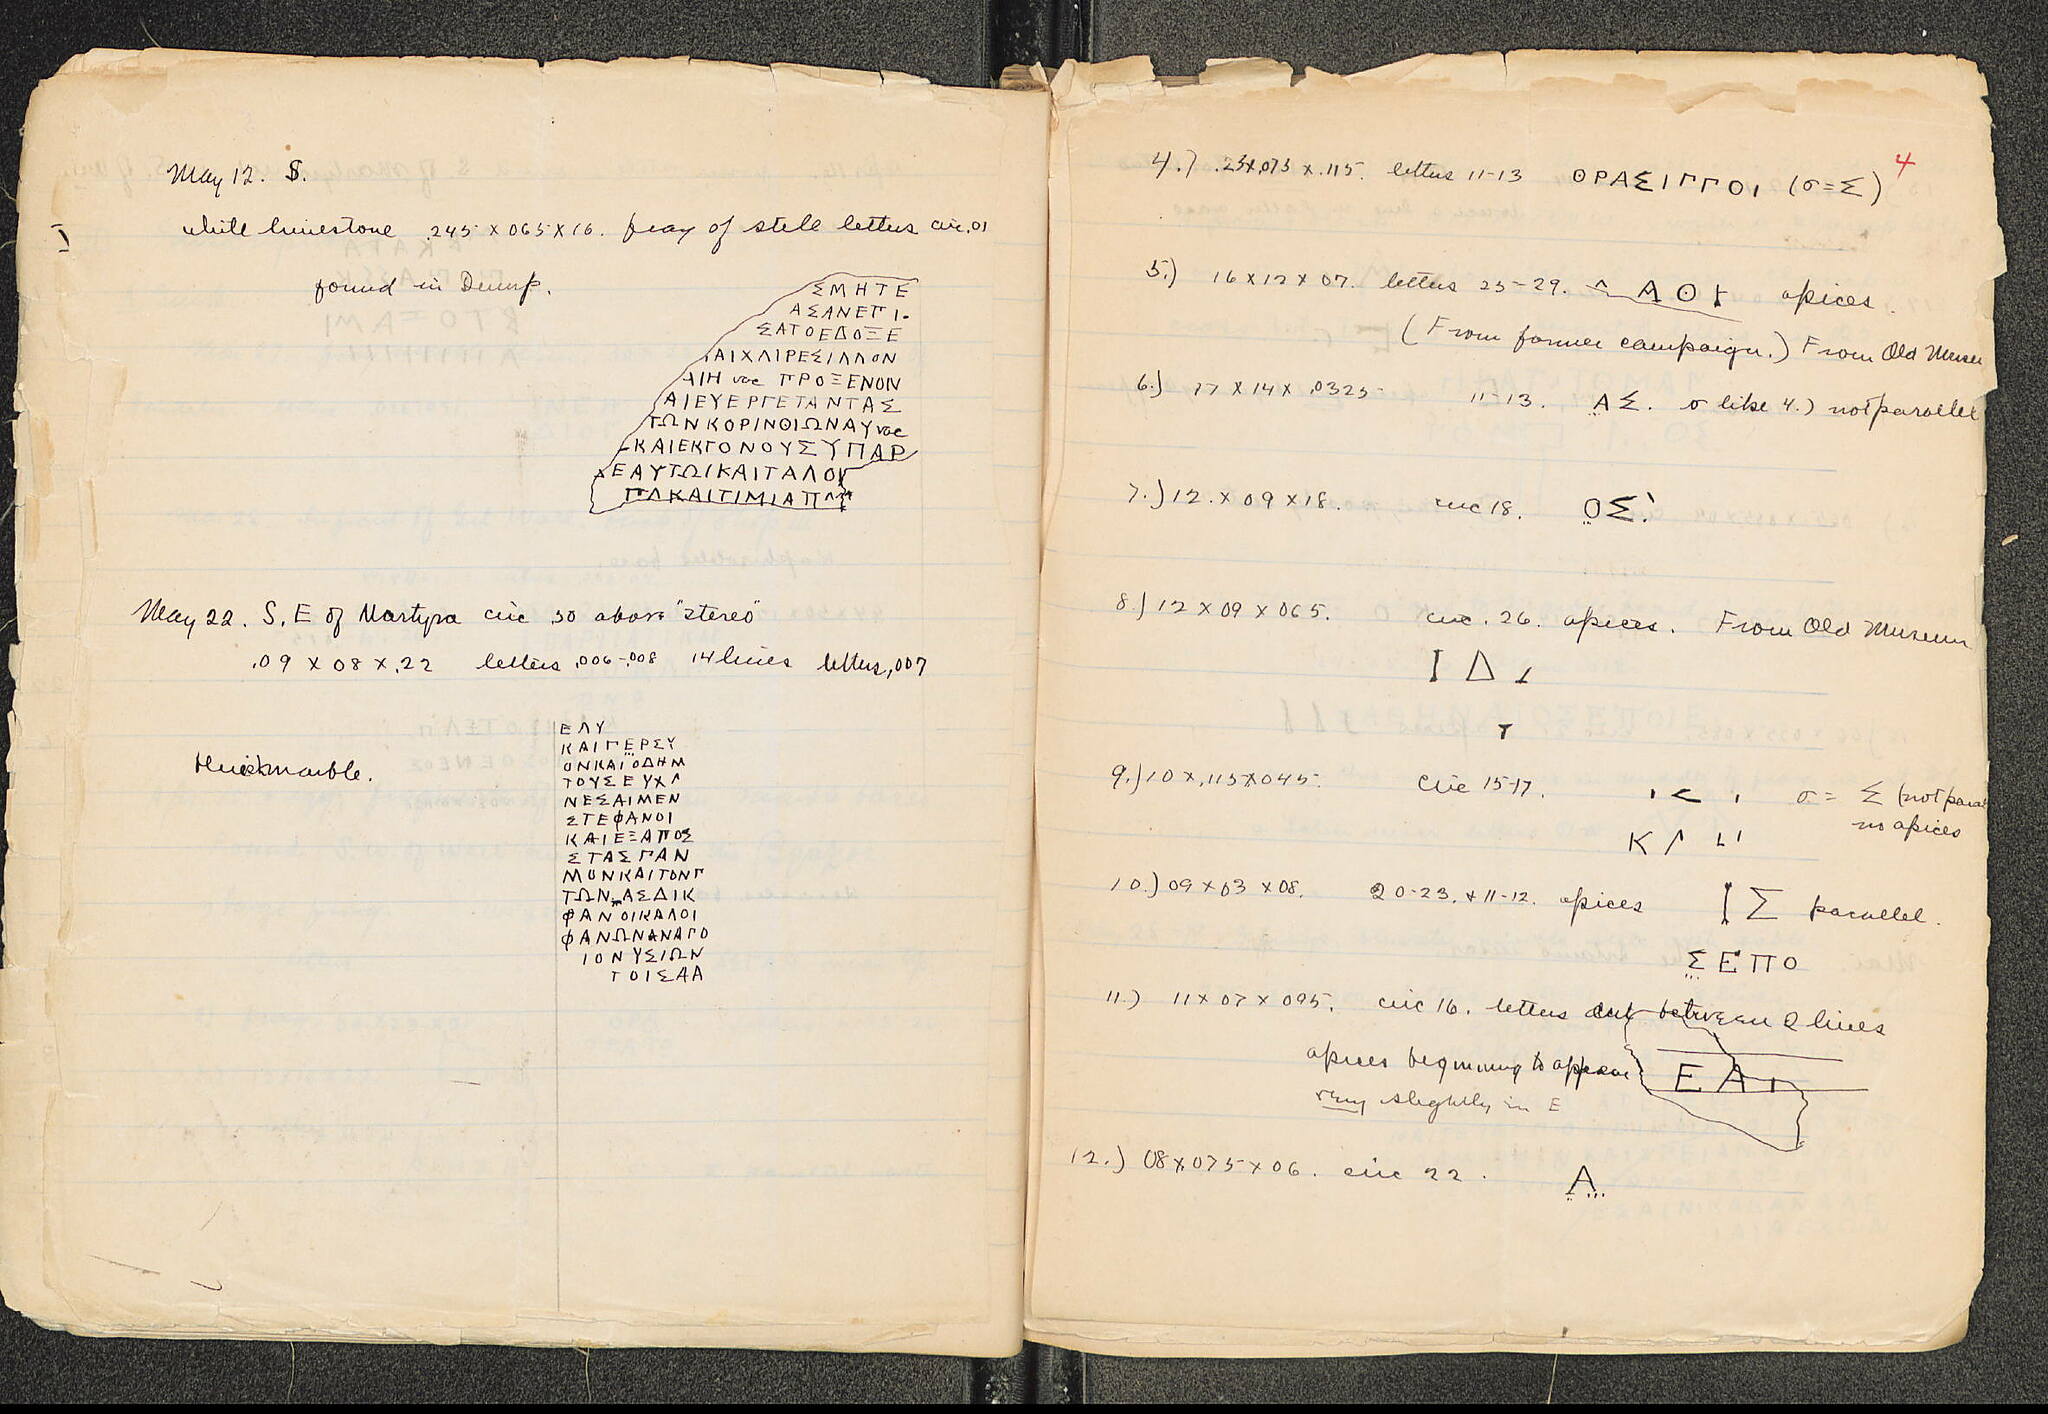 May 12. S.
white limestone .245 × 065 × 16. frag of stele letters circ .01
found in Dump.
ΣΜΗΤΕ
ΑΣΑΝΕΠΙ
ΣΑΤΟΕΔΟΞΕ
ΑΙΧΛΙΡΕΣΙΛΛΟΝ
ΛΙΗ vac ΠΡΟΞΕΝΟΝ
ΑΙΕΥΕΡΓΕΤΑΝΤΑΣ
ΤΩΝΚΟΡΙΝΘΙΩΝΑΥ vac
ΚΑΙΕΚΓΟΝΟΥΣΥΠΑΡ
ΕΑΥΤΩΙΚΑΙΤΑΛΟΙ
ΠΛΚΑΙΤΙΜΙΑΠ
May 22. S.E of Martyra circ .50 above "stereo"
.09 × 08 × .22 letters .006-.008 14 lines letters .007
ΕΛΥ
ΚΑΙΓΕΡΣΥ
ΟΝΚΑΙΟΔΗΜ
ΤΟΥΣΕΥΧΛ
ΝΕΣΑΙΜΕΝ
ΣΤΕΦΑΝΟΙ
marble.
ΚΑΙΕΞΑΠΟΣ
ΣΤΑΣΓΑΝ
ΜΟΝΚΑΙΤΟΝΓ
ΤΩΝ ΑΣΔΙΚ
ΦΑΝΟΙΚΑΛΟΙ
ΦΑΝΩΝΑΝΑΓΟ
ΙΟΝΥΣΙΩΝ
ΤΟΙΣΔΑ
4
4.) .23×.073 × .115. letters 11-13 ΘΡΑΣΙΓΓΟΙ (σ=Σ)
5.) 16 × 12 × 07. letters 25-29. ΑΟΙ apices.
(From former campaign.) From Old Museu
6.) 17 × 14 × .0325 11-13. ΑΣ. σ like 4.) not parallel
7.) 12. × 09 × 18. circ 18. ΟΣ
8.) 12 × 09 × 065. circ. 26. apices. From Old Museum
Ι Δ
Τ
9.) 10 × .115×045. circ 15-17. < σ = Σ (not para
no apices
Κ Λ
10.) 09 × 03 × 08. 20-23. + 11-12. apices Ι Σ parallel.
ΣΕΠΟ
11.) 11 × 07 × 095. circ 16. letters cut between 2 lines
apices beginning to appear ΕΑΙ
very slightly in E
12.) 08×075×06. circ 22. Α